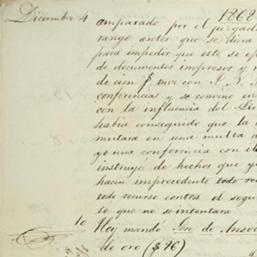 1868
Diciembre 4 amparado por el juzgad
rango antes que se diera
para impedir que este se op
de documentos impresos y
de cien $ tuve con
conferencia y se convino en
con la influencia del Lic
habia conseguido que la
mutara en una multa
yo una conferencia con el
instruyó de hechos que y
hacen improcedente todo
todo recurso contra el segu
to que se intentara
10 Hoy mandó José de Anso
de oro ($ 96)